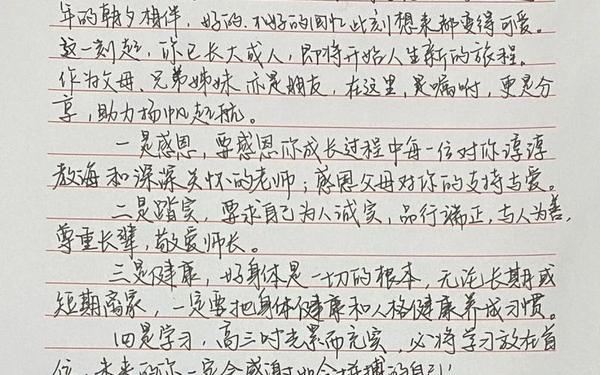 年的朝夕相伴，好的、不好的回忆此刻想来都变得可爱。
这一刻起，你已长大成人，即将开始人生新的旅程。
作为父母、兄弟姊妹，亦是朋友，在这里，是嘱咐，更是分
享，助力扬帆起航。
一是感恩，要感恩你成长过程中每一位对你谆谆
教海和深深关怀的老师；感恩父母对你的支持与爱。
二是踏实，要求自己为人诚实，品行端正，与人为善，
尊重长辈，敬爱师长。
三是健康，好身体是一切的根本，无论长期或
短期离家，一定要把身体健康和人格健康养成习惯。
四是学习，高三时光累而充实，必将学习放在首
位，未来的你一定会感谢如今拼搏的自己！